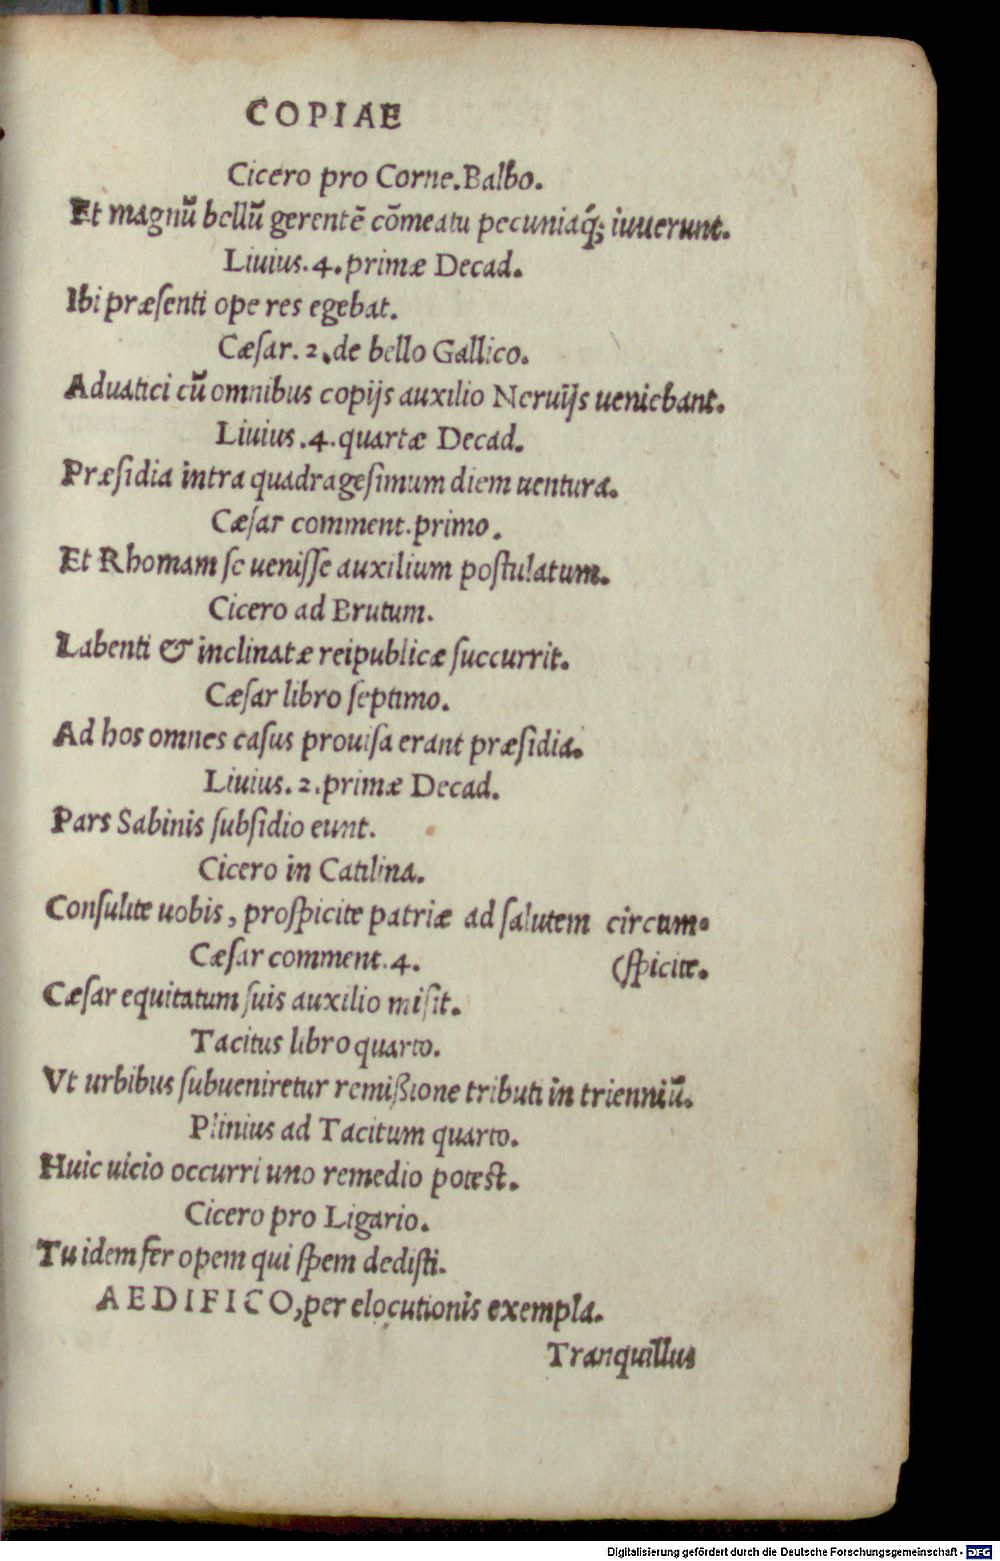 COPIAE
Cicero pro Corne.Balbo.
Et magnū bellū gerentē cōmeatu pecuniaq́; iuuerunt.
Liuius.4.primæ Decad.
Ibi præſenti ope res egebat.
Cæſar. 2.de bello Gallico.
Aduatici cū omnibus copijs auxilio Neruijs ueniebant.
Liuius.4.quartæ Decad.
Præſidia intra quadrageſimum diem uentura.
Cæſar comment.primo.
Et Rhomam ſe ueniſſe auxilium poſtulatum.
Cicero ad Brutum.
Labenti & inclinatæ reipublicæ ſuccurrit.
Cæſar libro ſeptimo.
Ad hos omnes caſus prouiſa erant præſidia.
Liuius. 2.primæ Decad.
Pars Sabinis ſubſidio eunt.
Cicero in Catilina.
Conſulite uobis, proſpicite patriæ ad ſalutem circum-
Cæſar comment.4. (ſpicite.
Cæſar equitatum ſuis auxilio miſit.
Tacitus libro quarto.
Vt urbibus ſubueniretur remiſsione tributi in trienniū.
Plinius ad Tacitum quarto.
Huic uicio occurri uno remedio poteſt.
Cicero pro Ligario.
Tu idem fer opem qui ſpem dediſti.
AEDIFICO,per elocutionis exempla.
Tranquillus
Digitalisierung gefördert durch die Deutsche Forschungsgemeinschaft - DFG